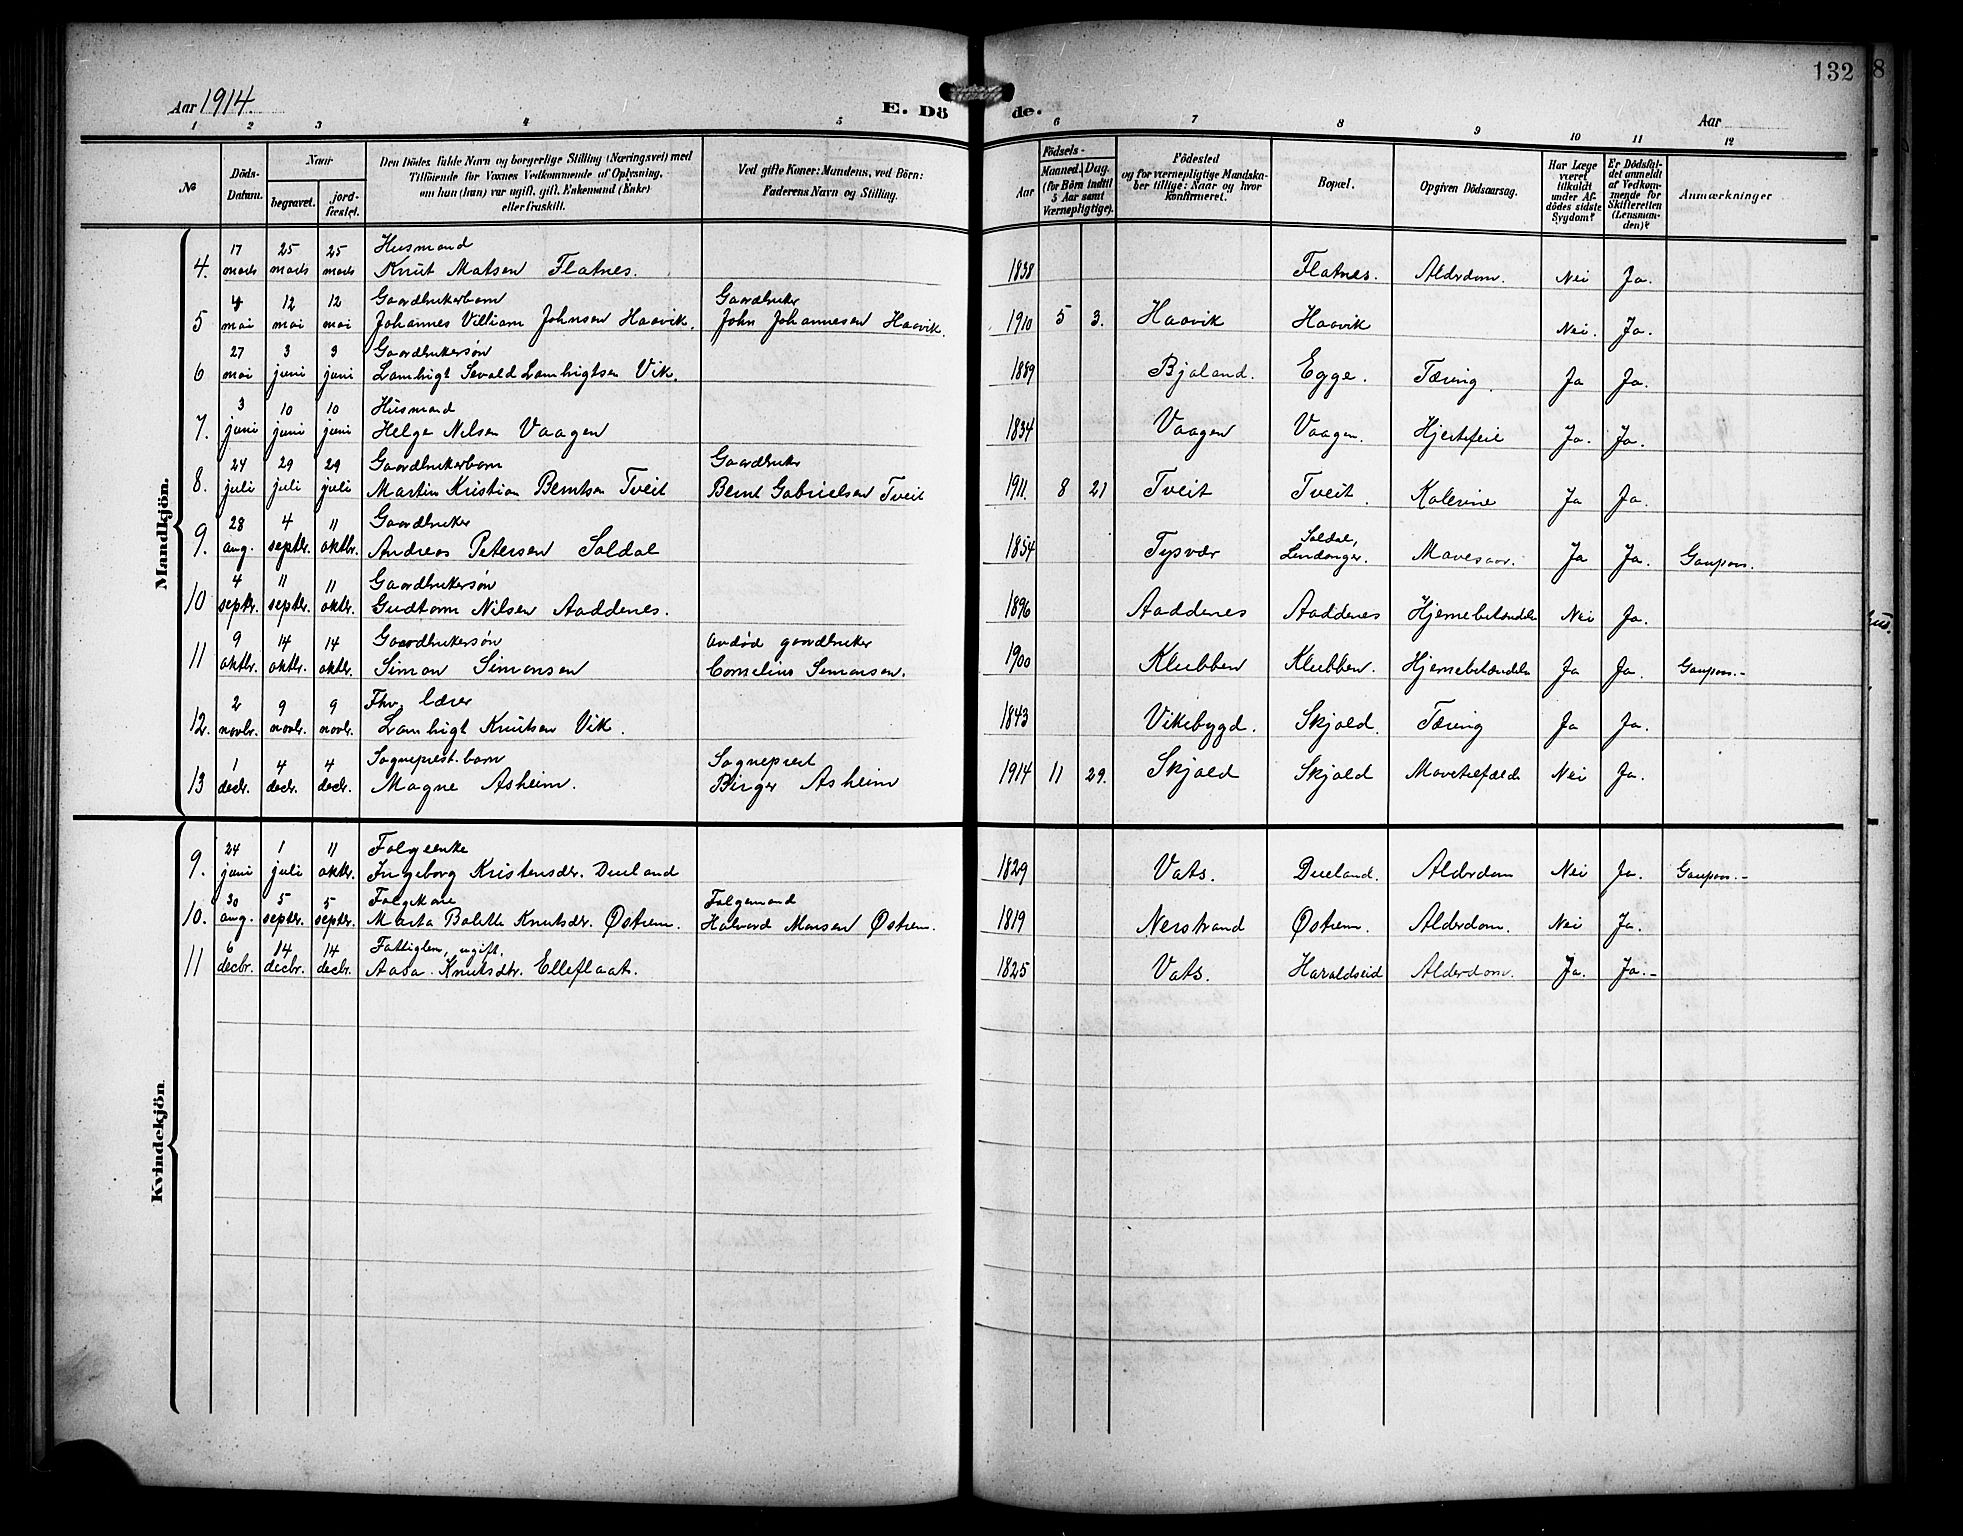 132
8
Aar 1914.
E. Dö de.
Aar
1 2 3 4 5 6 7 8 9 10 11 12
No
Döds-Datum.
Naar
begravet.
jord-fæstet.
Den Dödes fulde Navn og borgerlige Stilling (Næringsvei) med
Tilföiende for Voxnes Vedkommende af Oplysning,
om hun (han) var ugift, gift, Enkemand (Enke)
eller fraskilt.
Ved gifte Koner: Mandens, ved Börn:
Faderens Navn og Stilling.
Födsels-
Aar
Maaned. Dag.
(for Börn indtil
5 Aar samt
Værnepligtige).
Födested
og for værnepligtige Mandska-
ber tillige: Naar og hvor
konfirmeret.
Bopæl.
Opgiven Dödsaarsag.
Har Læge
været
tilkaldt
under Af-
dödes sidste
Sygdom?
Er Dödsfal-
det anmeldt
af Vedkom-
mende for
Skifteretten
(Lensman-
den)?
Anmærkninger
Mandkjön.
17 25 25 Husmand
4. mads mads mads Knut Matsen Flatnes. 1838 Flatnes. Alderdom. Nei Ja.
4 12 12 Gaardbrukerbarn Gaardbruker
5 mai mai mai Johannes Villiam Johnsen Haavik. John Johannesen Haavik. 1910 5 3. Haavik Haavik Nei. Ja.
27 3 3 Gaardbrukersøn
6 mai juni juni Lambrigt Sevald Lambrigtsen Vik. 1889 Bjoland. Egge. Tæring. Ja Ja.
3 10 10 Husmand
7. juni juni juni Helge Nilsen Vaagen 1834 Vaagen Vaagen. Hjertefeil Ja. Ja.
24 29 29 Gaardbrukerbarn Gaardbruker
8. juli juli juli Martin Kristian Berntsen Tveit Bernt Gabrielsen Tveit 1911. 8 21 Tveit Tveit. Kolerine Ja Ja.
28 4 11 Gaardbruker Saldal,
9. aug. septbr. oktbr. Andreas Petersen Saldal 1854 Tysvær Lindanger. Mavesaar. Ja Ja. Gaupne.
4 11 11 Gaardbrukersøn
10 septbr. septbr. oktbr. Gudtorm Nilsen Aaddenes. 1896 Aaddenes Aaddenes Hjernebetændelse Nei Ja.
9 14 14 Gaardbrukersøn avdød gaardbruker
11 oktbr. oktbr. oktbr. Simon Simonsen Cornelius Simonsen. 1900 Klubben Klubben. Hjernebetændelse Ja Ja.
2 9 9 Fhv. lærer
12. novbr. novbr. novbr. Lambrigt Knutsen Vik. 1843 Vikebygd. Skjold. Tæring Ja Ja.
1 4 4 Sogneprest.barn Sogneprest
13 decbr. decbr. decbr. Magne Asheim. Birger Asheim 1914 11 29. Skjold Skjold Mavetilfælde Nei Ja.
Kvindekjön
24 1 11 Folgeenke
9. juni juli oktbr. Ingeborg Kristensdtr. Dueland 1829 Vats. Dueland. Alderdom Nei Ja.
30 5 5 Folgekone Folgemand
10. aug. septbr. septbr. Marta Bolette Knutsdtr. Østrem. Halvard Monsen Østrem. 1819 Nerstrand Østrem. Alderdom. Nei Ja.
6 14 14 Fattiglem, ugift.
11 decbr. decbr. decbr. Aasa Knutsdtr. Elleflaat. 1825 Vats. Haraldseid Alderdom. Ja. Ja.-